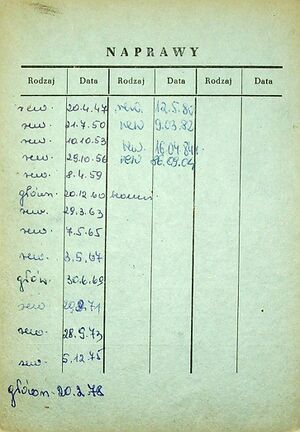 NAPRAWY
Rodzaj Data Rodzaj Data Rodzaj Data
rew. 20.4.47 rew. 12.5.80
rew. 21.7.50 rew 9.03.82
rew. 10.10.53 rew. 16.04.84
rew. 29.10.56 rew
rew. 8.4.59
główn. 20.12.60
rew. 29.3.63
rew. 7.5.65
rew. 3.5.67
głów. 30.6.69
rew 71
rew. 28.9.73
rew. 5.12.75
główn. 20.2.78